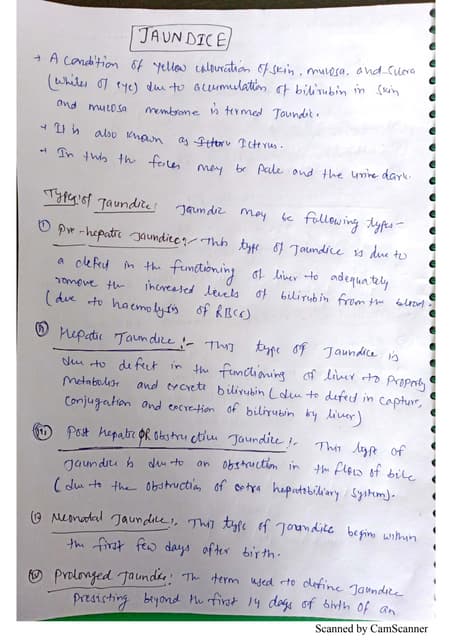 JAUNDICE
→ A condition of yellow colouration of skin, mucosa, and sclera
(whites of eye) due to accumulation of bilirubin in skin
and mucosa membrane is termed Jaundice.
→ It is also known as Icterus.
→ In this the feces may be pale and the urine dark.
Types of Jaundice: Jaundice may be following types-
(i) Pre-hepatic Jaundice:- This type of Jaundice is due to
a defect in the functioning of liver to adequately
remove the increased levels of bilirubin from the blood.
(due to haemolysis of RBCs)
(ii) Hepatic Jaundice:- This type of Jaundice is
due to defect in the functioning of liver to Properly
metabolise and excrete bilirubin (due to defect in capture,
conjugation and excretion of bilirubin by liver)
(iii) Post Hepatic OR Obstructive Jaundice:- This type of
Jaundice is due to an obstruction in the flow of bile
(due to the obstruction of extra hepatobiliary system).
(iv) Neonatal Jaundice:- This type of Jaundice begins within
the first few days after birth.
Prolonged Jaundice: The term used to define Jaundice
Presisting beyond the first 14 days of birth of an
Scanned by CamScanner